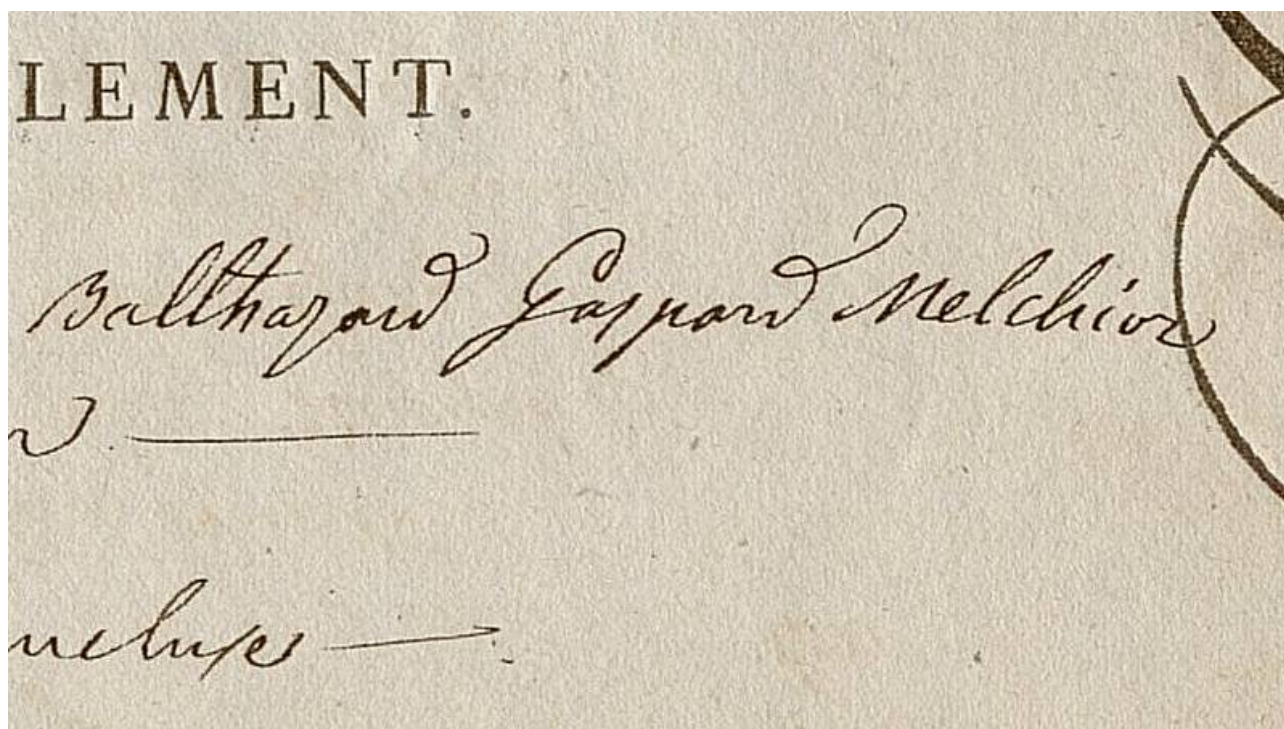 LEMENT.
Balthazard Gaspard Melchior